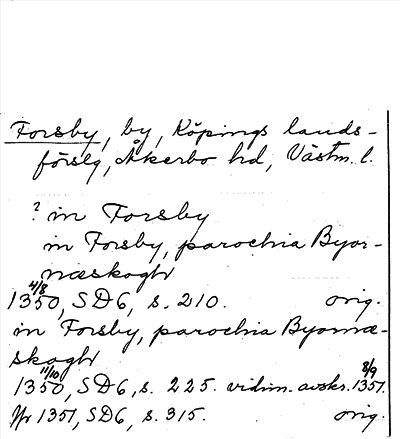 Forsby, by, Köpings lands-
förslg, Åkerbo hd, Västm. l.
? in Forsby
in Forsby, parochia Byor-
næskogh
4/8
1350, SD6, s. 210. orig.
in Forsby, parochia Byornæ-
skogh
11/10 8/9
1350, SD6, s. 225. vidim. avskr. 1351.
Yr 1351, SD6, s. 315. orig.